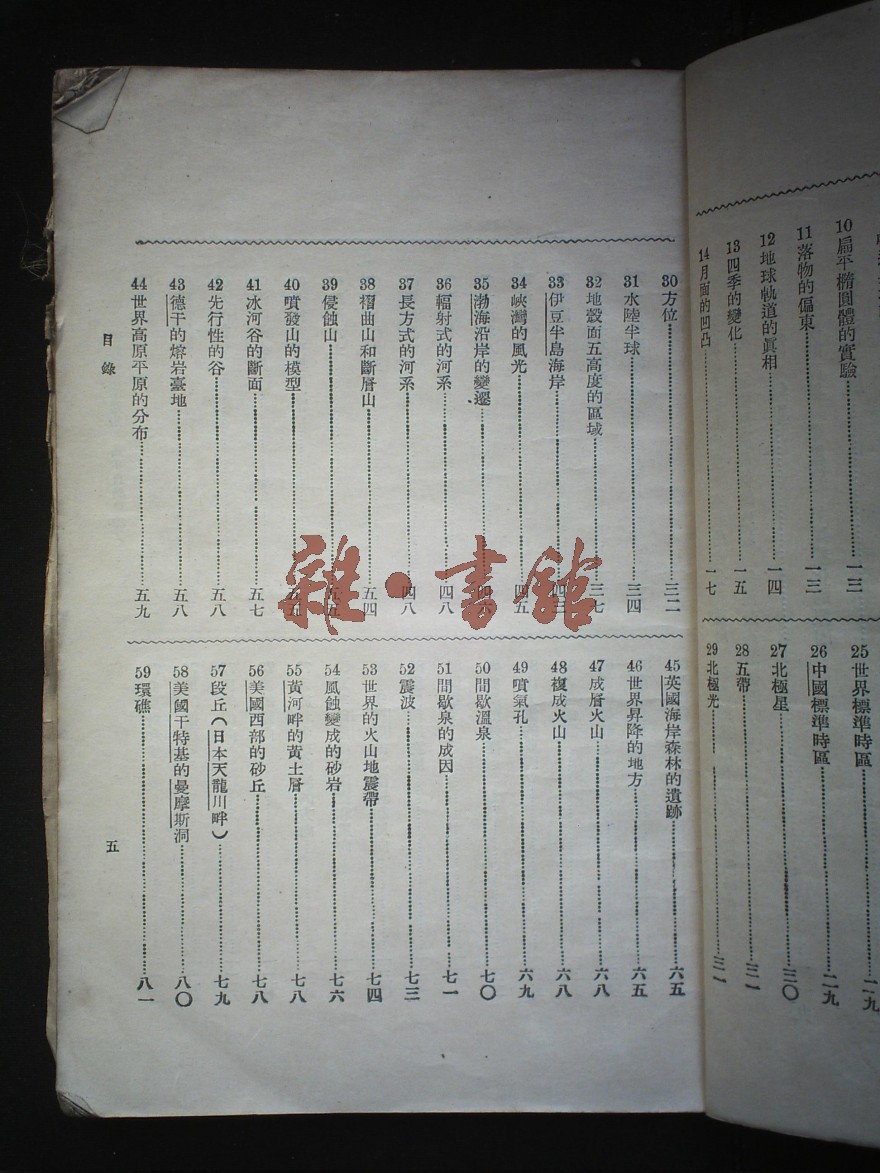 10 扁平橢圓體的實驗 一三
11 落物的偏東 一三
12 地球軌道的眞相 一四
13 四季的變化 一五
14 月面的凹凸 一七
25 世界標準時區 二九
26 中國標準時區 二九
27 北極星 三〇
28 五帶 三一
29 北極光 三一
30 方位 三二
31 水陸半球 三四
32 地殼面五高度的區域 三七
33 伊豆半島海岸 四三
34 峽灣的風光 四五
35 渤海沿岸的變遷
36 輻射式的河系 四八
37 長方式的河系 四八
38 褶曲山和斷層山 五四
39 侵蝕山
40 噴發山的模型
41 冰河谷的斷面 五七
42 先行性的谷 五八
43 德干的熔岩臺地 五八
44 世界高原平原的分布 五九
45 英國海岸森林的遺跡 六五
46 世界昇降的地方 六五
47 成層火山 六八
48 複成火山 六八
49 噴氣孔 六九
50 間歇溫泉 七〇
51 間歇泉的成因 七一
52 震波 七三
53 世界的火山地震帶 七四
54 風蝕變成的砂岩 七六
55 黃河畔的黃土層 七八
56 美國西部的砂丘 七八
57 段丘(日本天龍川畔) 七九
58 美國干特基的曼摩斯洞 八〇
59 環礁 八一
目錄
五
雜·書館